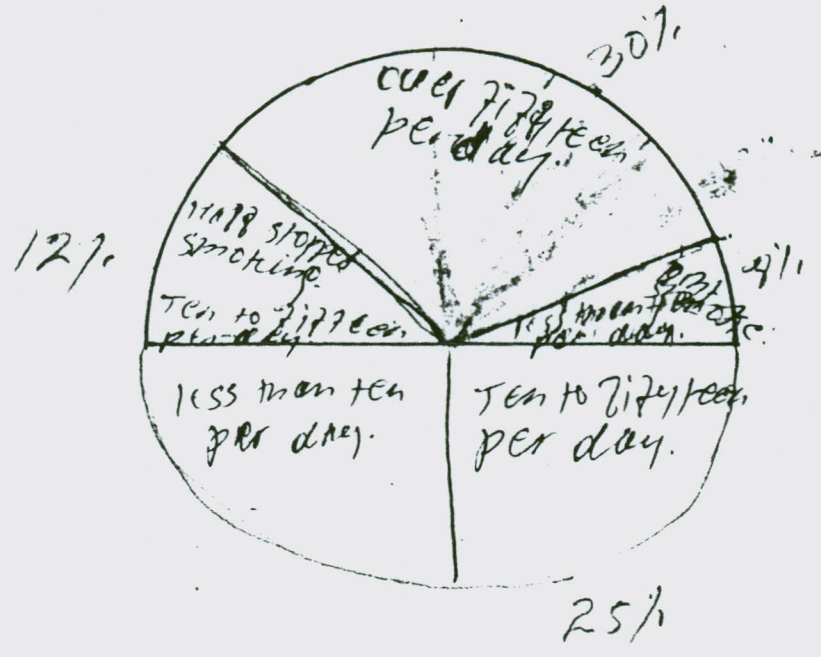 30%
over fifteen
per day.
12%
stopped
smoking.
Ten to fifteen
per day.
4%
less than ten
per day.
less than ten
per day.
Ten to fifteen
per day.
25%